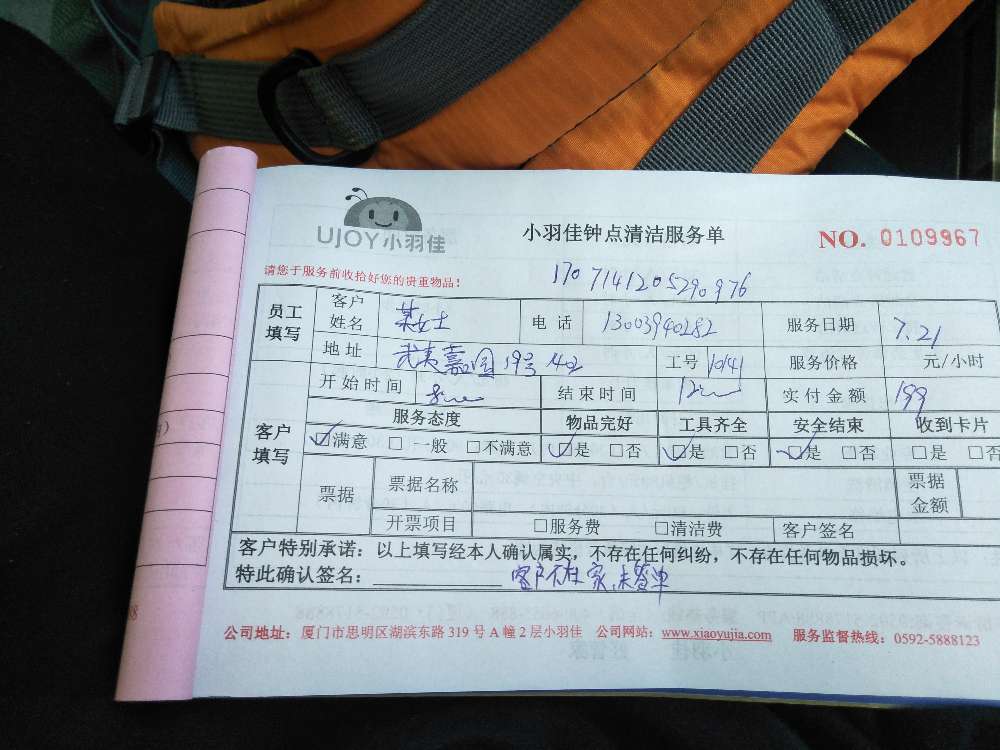 UJOY小羽佳
小羽佳钟点清洁服务单
NO. 0109967
请您于服务前收拾好您的贵重物品!
1707141205290976
员工填写 客户姓名 某女士 电话 13003940282 服务日期 7.21
地址 武夷嘉园19号402 工号 10141 服务价格 元/小时
客户填写 开始时间 结束时间 实付金额 199
服务态度 物品完好 工具齐全 安全结束 收到卡片
☑满意 □一般 □不满意 ☑是 □否 ☑是 □否 ☑是 □否 □是 □否
票据 票据名称 票据金额
开票项目 □服务费 □清洁费 客户签名
客户特别承诺:以上填写经本人确认属实,不存在任何纠纷,不存在任何物品损坏。
特此确认签名: 客户不在家,未签单
公司地址:厦门市思明区湖滨东路 319 号 A 幢 2 层小羽佳 公司网站:www.xiaoyujia.com 服务监督热线:0592-5888123